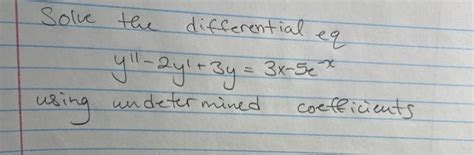 Solve the differential eq
y'' - 2y' + 3y = 3x - 5e^-x
using undetermined coefficients